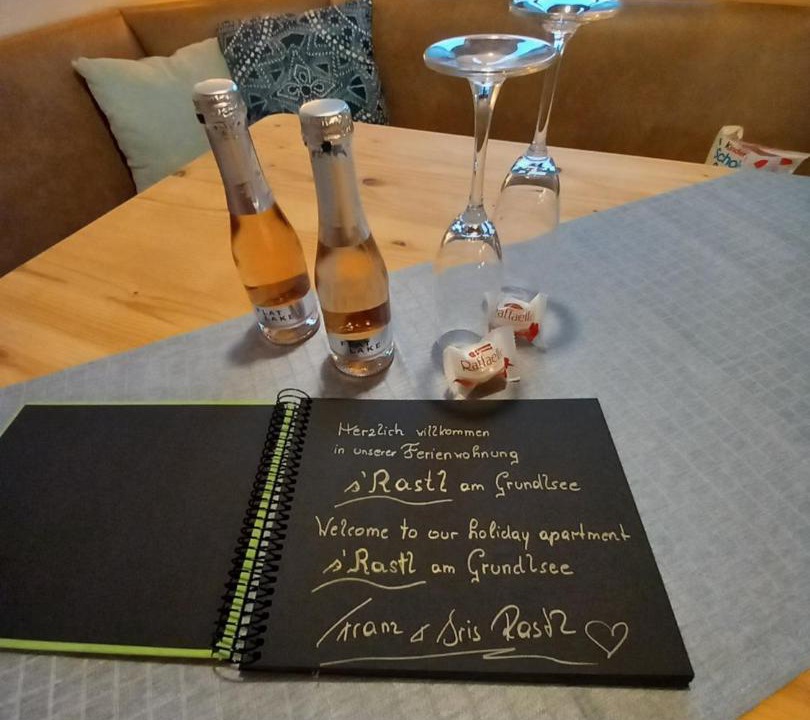 Kinder
Scho
FLAT
LAKE
FLAT
LAKE
Raffaell
Raffaell
Herzlich willkommen
in unserer Ferienwohnung
s'Rastl am Grundlsee
Welcome to our holiday apartment
s'Rastl am Grundlsee
Franz & Iris Rastl